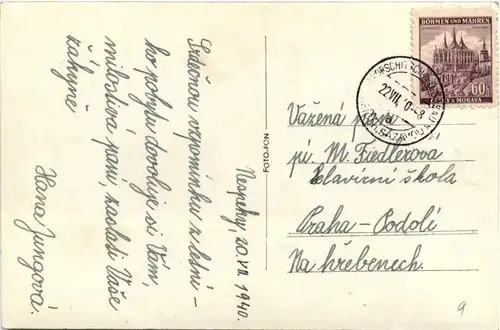 Nespeky, 20.VII.1940.
Srdečnou vzpomínku z letní-
ho pobytu dovoluje si Vám,
milostivá paní, zaslati Vaše
žákyně
Hana Jungová.
FOTOJON
BÖHMEN UND MÄHREN
60
ČECHY A MORAVA
22.VII.40-8
SÁZAVOU
Vážená paní
pí. M. Fiedlerová
klavírní škola
Praha-Podolí
Na hřebenech.
9